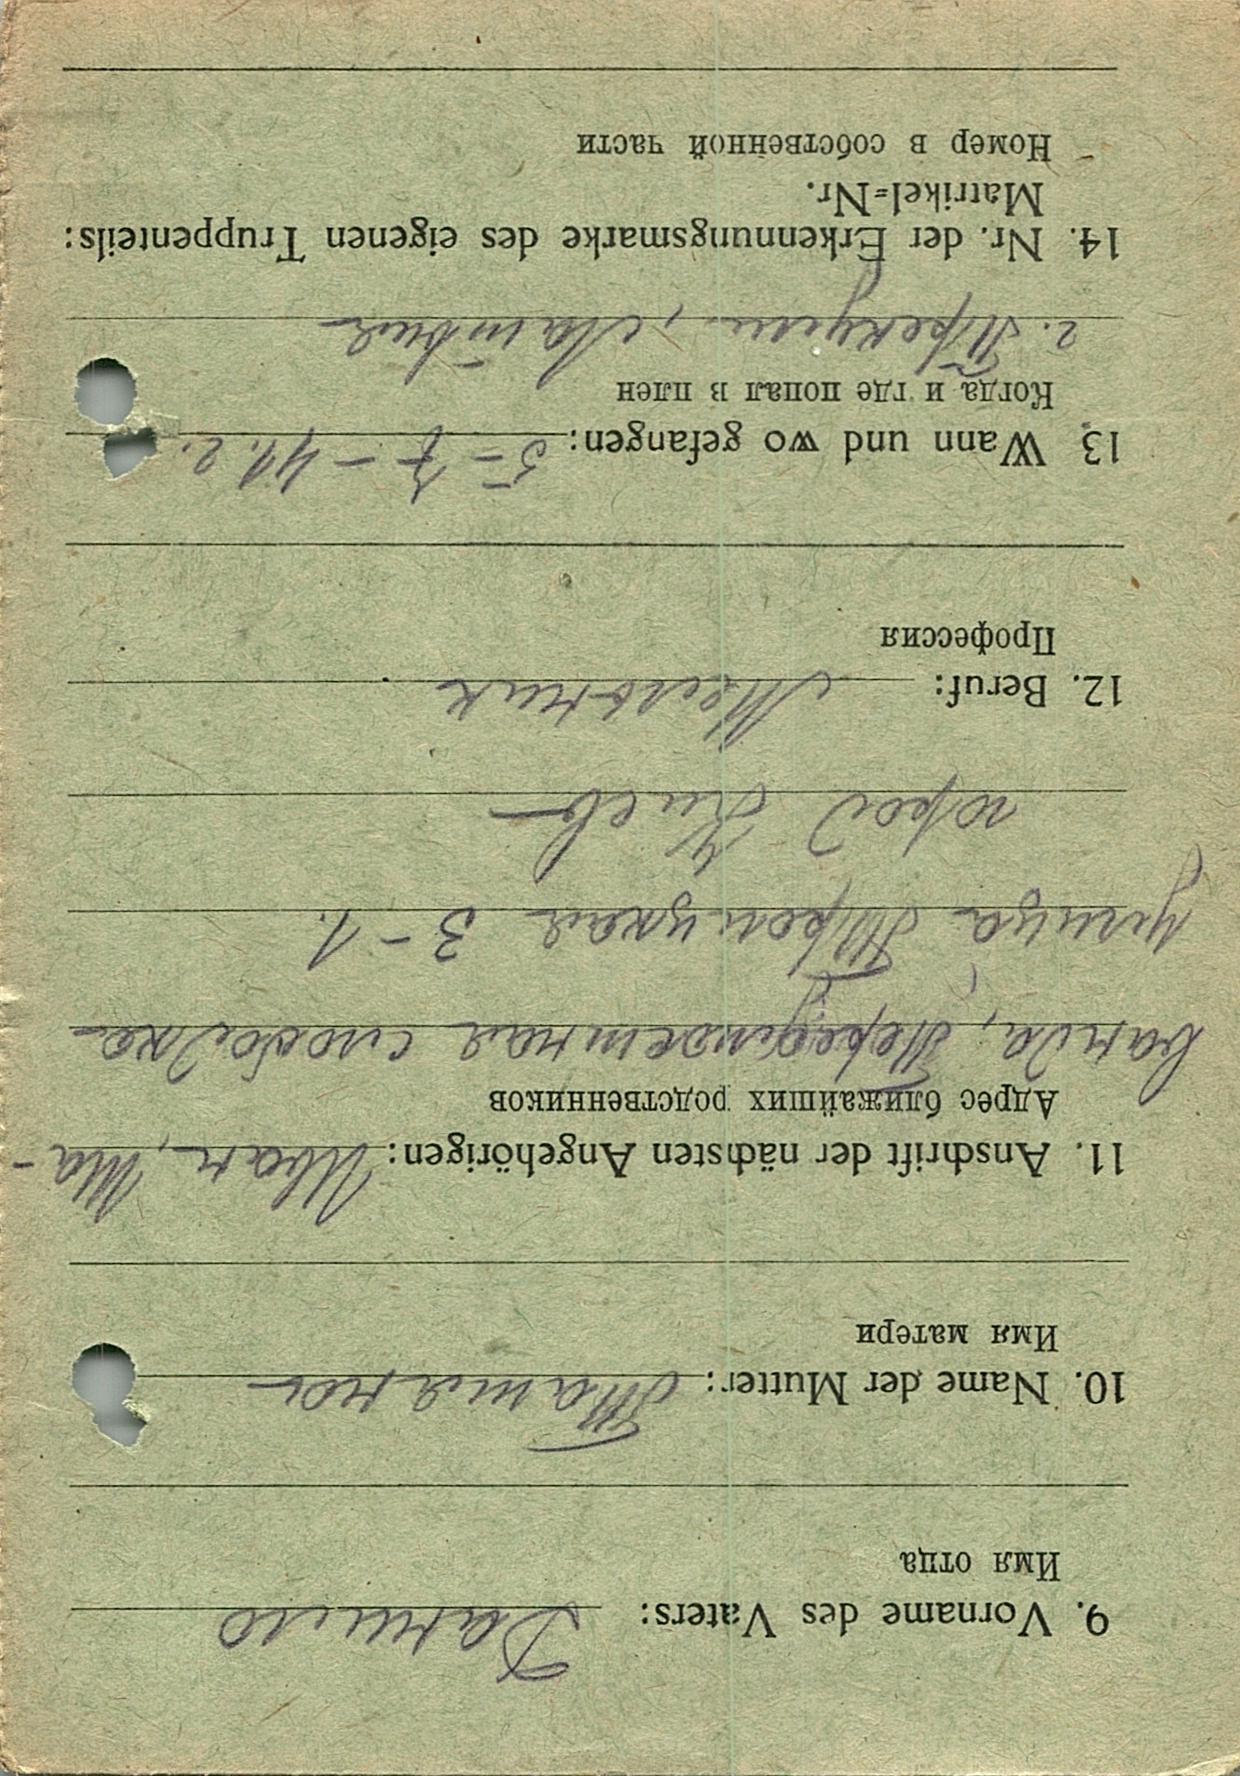 9. Vorname des Vaters: Данило
Имя отца
10. Name der Mutter: Татяна
Имя матери
11. Anschrift der nächsten Angehörigen: Иван,
Адрес ближайших родственников
слободка
улица 3-1.
город Киев
12. Beruf: Мельник
Профессия
13. Wann und wo gefangen: 5-7-41 г.
Когда и где попал в плен
г. , Латвия
14. Nr. der Erkennungsmarke des eigenen Truppenteils:
Matrikel=Nr.
Номер в собственной части